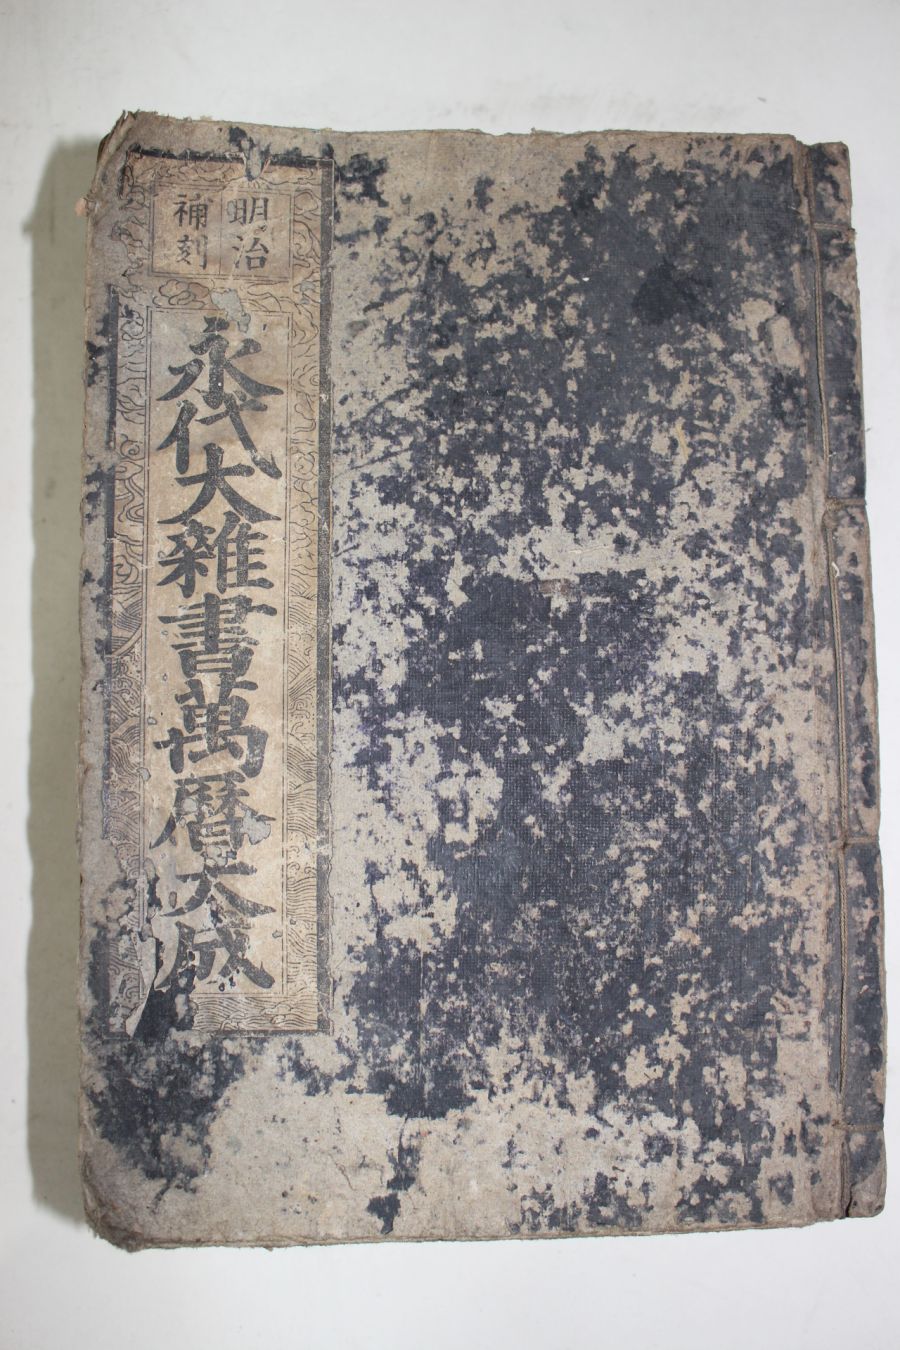 明治
補刻
永代大雜書萬暦大成